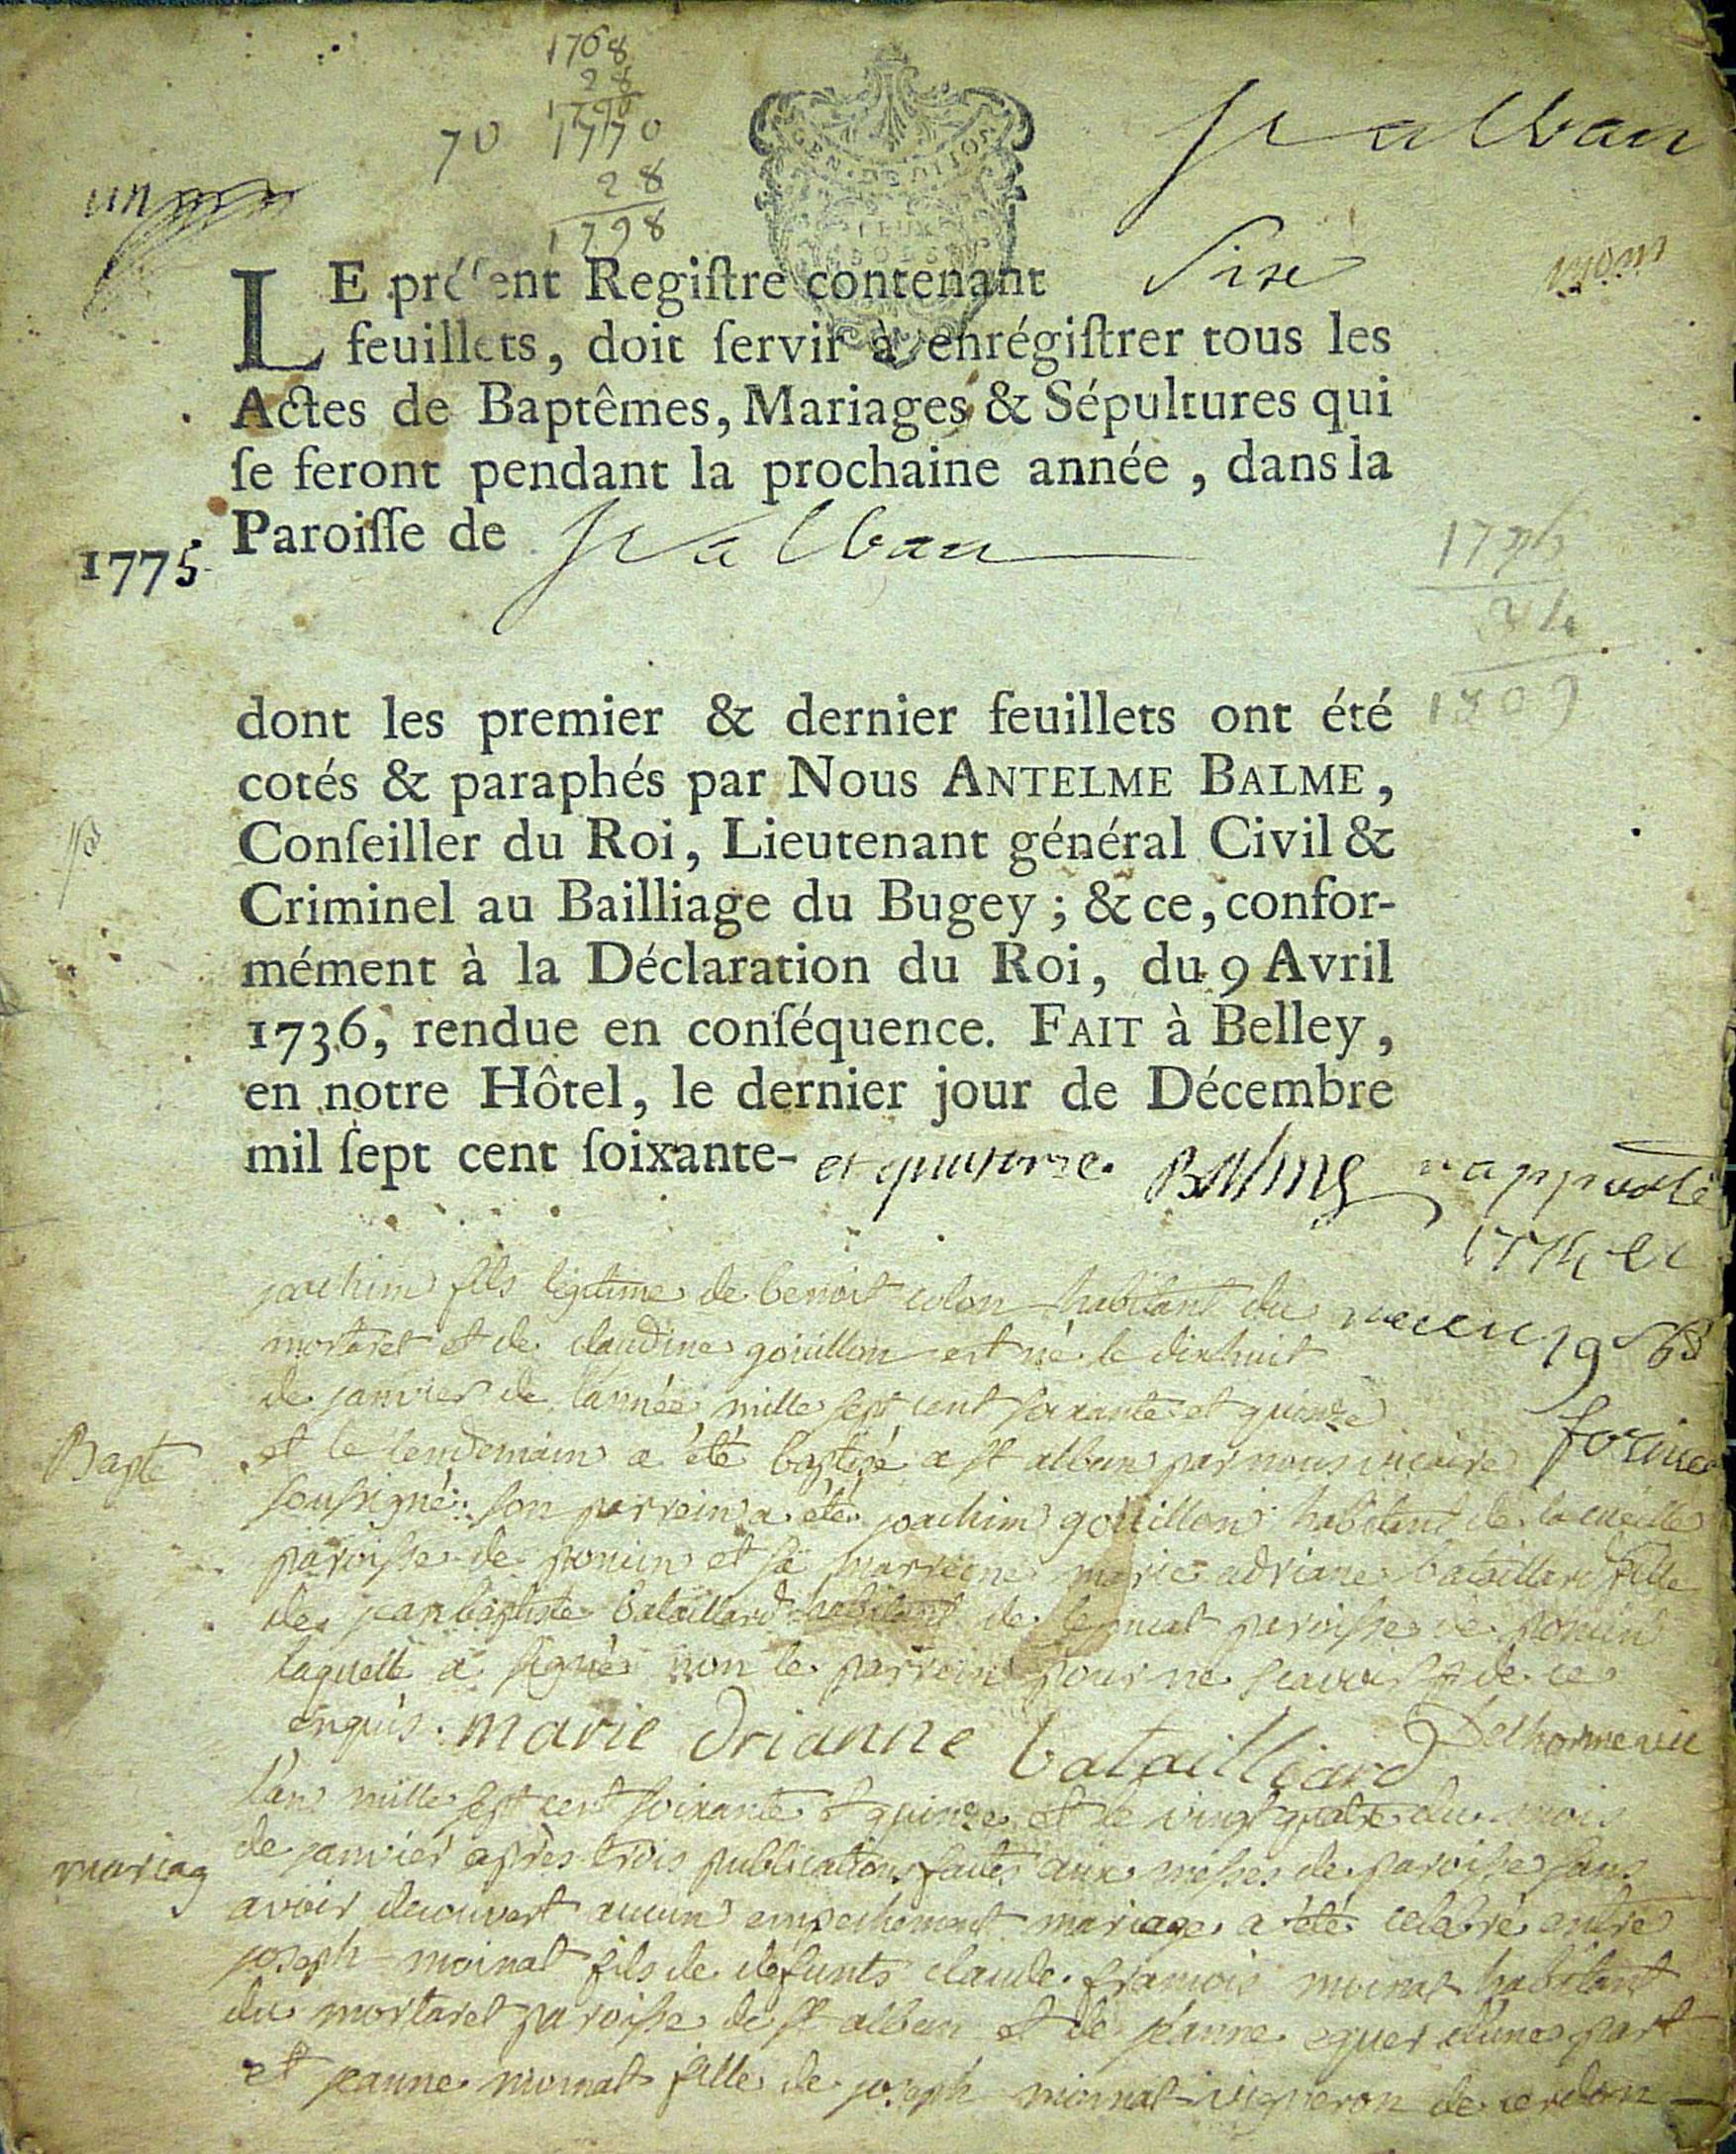 1768
28
1770
70
28
1798
St alban
un
GEN. DE DIION
LE préſent Regiſtre contenant Six
feuillets, doit ſervir à enrégiſtrer tous les
Actes de Baptêmes, Mariages & Sépultures qui
ſe feront pendant la prochaine année, dans la
Paroiſſe de St alban
1775
dont les premier & dernier feuillets ont été
cotés & paraphés par Nous ANTELME BALME,
Conſeiller du Roi, Lieutenant général Civil &
Criminel au Bailliage du Bugey; & ce, confor-
mément à la Déclaration du Roi, du 9 Avril
1736, rendue en conſéquence. FAIT à Belley,
en notre Hôtel, le dernier jour de Décembre
mil ſept cent ſoixante- et quatorze. Balme
joachim fils légitime de benoit colon habitant du
mortaret et de claudine goüillon est né le dixhuit
de janvier de l'année mille sept cent soixante et quinze
Bapte
et le lendemain a été baptisé a st alban par nous vicaire
soussigné: son parrein a été joachim goüillon habitant de la cueille
paroisse de poncin et sa marreine marie adriane bataillard fille
de jean baptiste bataillard habitant de paroisse de poncin
laquelle a signé non le parrein pour ne scavoir de ce
enquis. marie drianne batailliard Delhorme vic
l'an mille sept cent soixante et quinze et le vingt quatre du mois
mariag
de janvier après trois publications faites aux messes de paroisse sans
avoir decouvert aucun empechement mariage a été celebré entre
joseph moinat fils de défunts claude françois moinat habitant
du mortaret paroisse de st alban et de jeanne eguer d'une part
et jeanne moinat fille de joseph moinat vigneron de cerdon